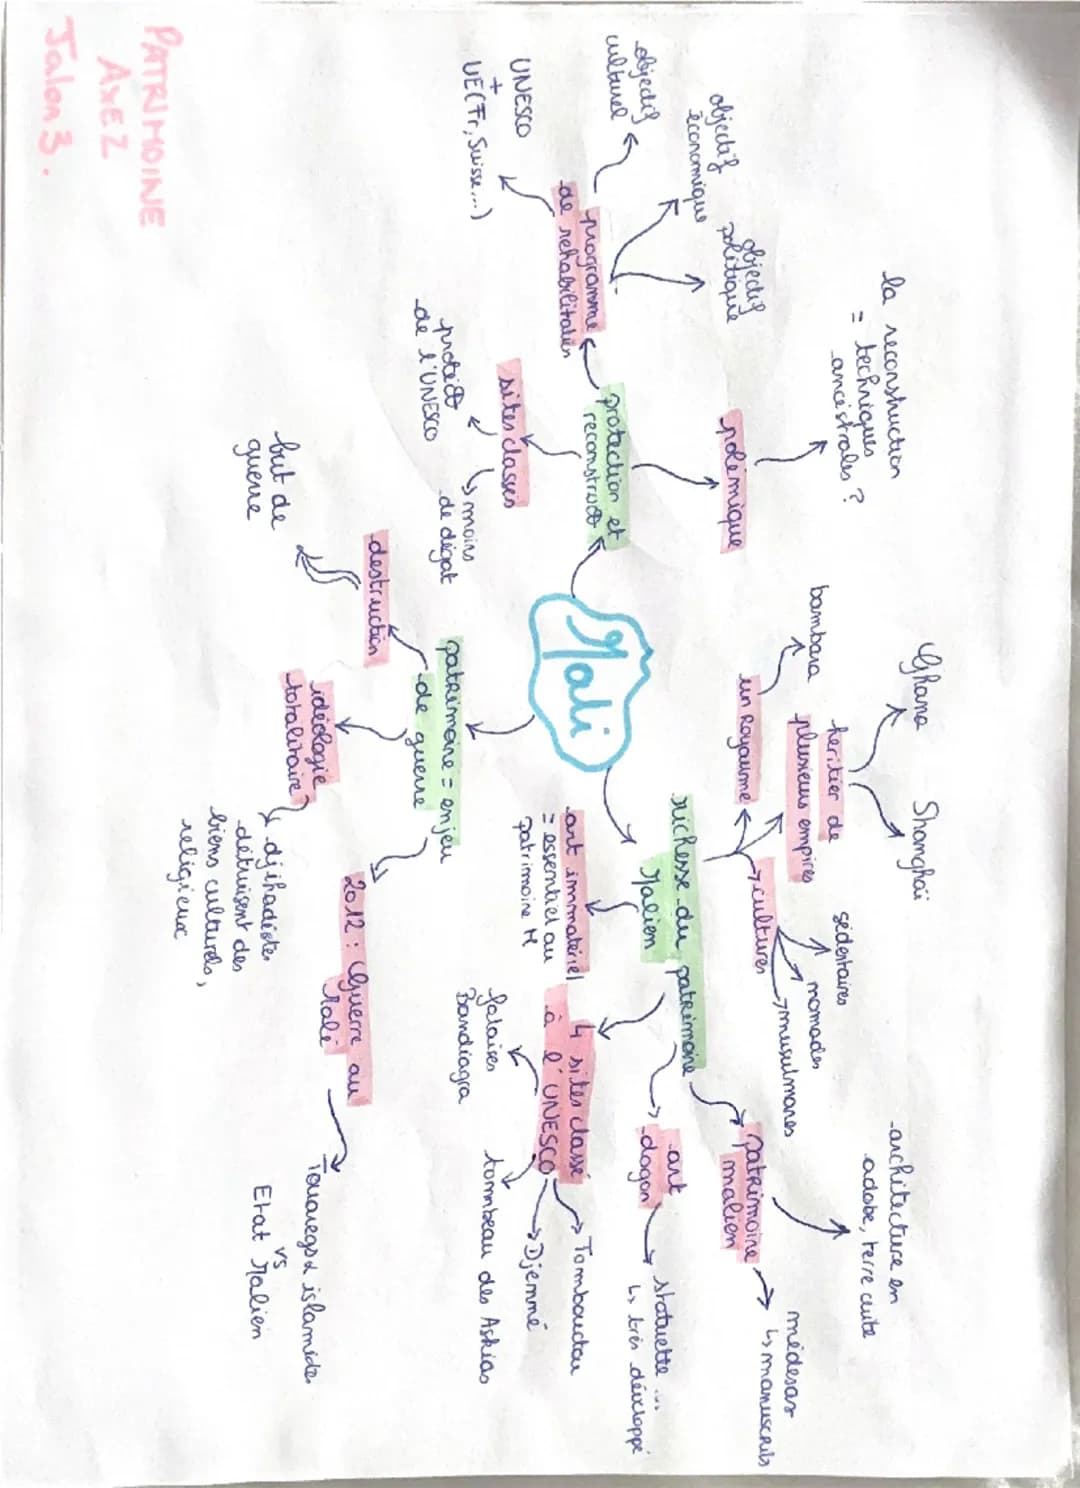 PATRIMOINE
AXE 2
Jalon 3.
Mali
protection et
reconstruct°
programme
de rehabilitation
objectif
culturel
objectif
économique
objectif
politique
UNESCO
+
UE (Fr, Suisse...)
polémique
la reconstruction
= techniques
ancéstrales ?
sites classés
protect°
de l'UNESCO
↳ moins
de dégat
richesse du patrimoine
Malien
un Royaume
bambara
heritier de
plusieurs empires
Ghana
Shonghaï
cultures
sédentaires
nomades
musulmanes
patrimoine
malien
architecture en
adobe, terre cuite
médesas
↳ manuscrits
art
dogon
statuette ...
↳ très développé
4 sites classé
à l'UNESCO
Tombouctou
Djenné
tombeau des Askias
falaises
Bandiagra
art immatériel
= essentiel au
patrimoine M
patrimoine = enjeu
de guerre
destruction
but de
guerre
idéologie
totalitaire ?
djihadistes
détruisent des
biens culturels,
religieux
2012 : Guerre au
Mali
Touaregs & islamistes
vs
Etat Malien